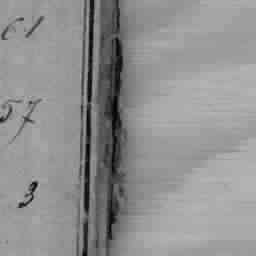 61
57
3